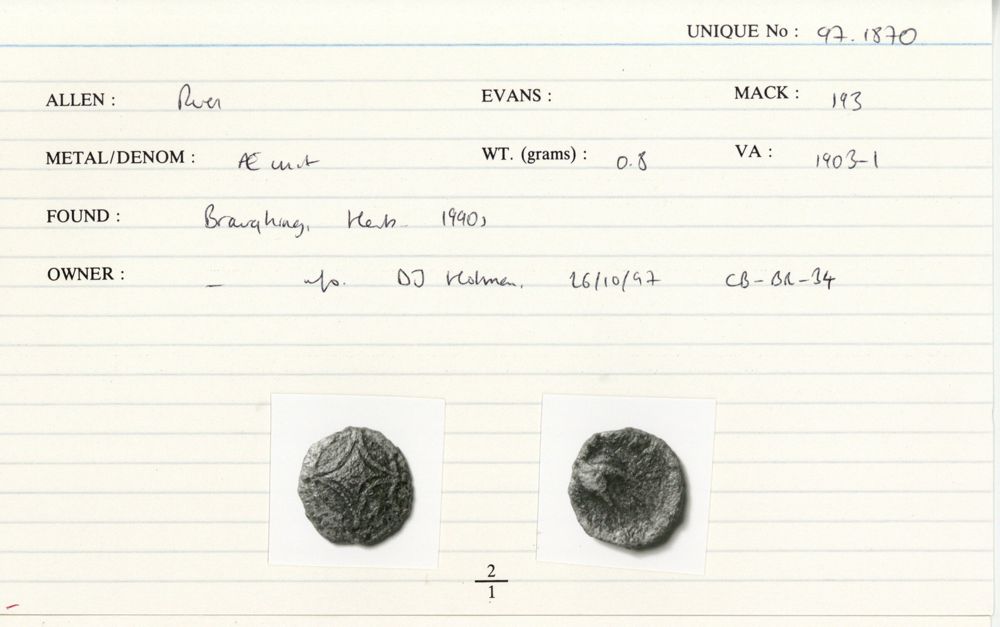 UNIQUE No : 97.1870
ALLEN : River EVANS : MACK : 193
METAL/DENOM : Æ unit WT. (grams) : 0.8 VA : 1903-1
FOUND : Braughing, Herts. 1990s
OWNER : – info. DJ Holman. 26/10/97 CB-BR-34
2
1